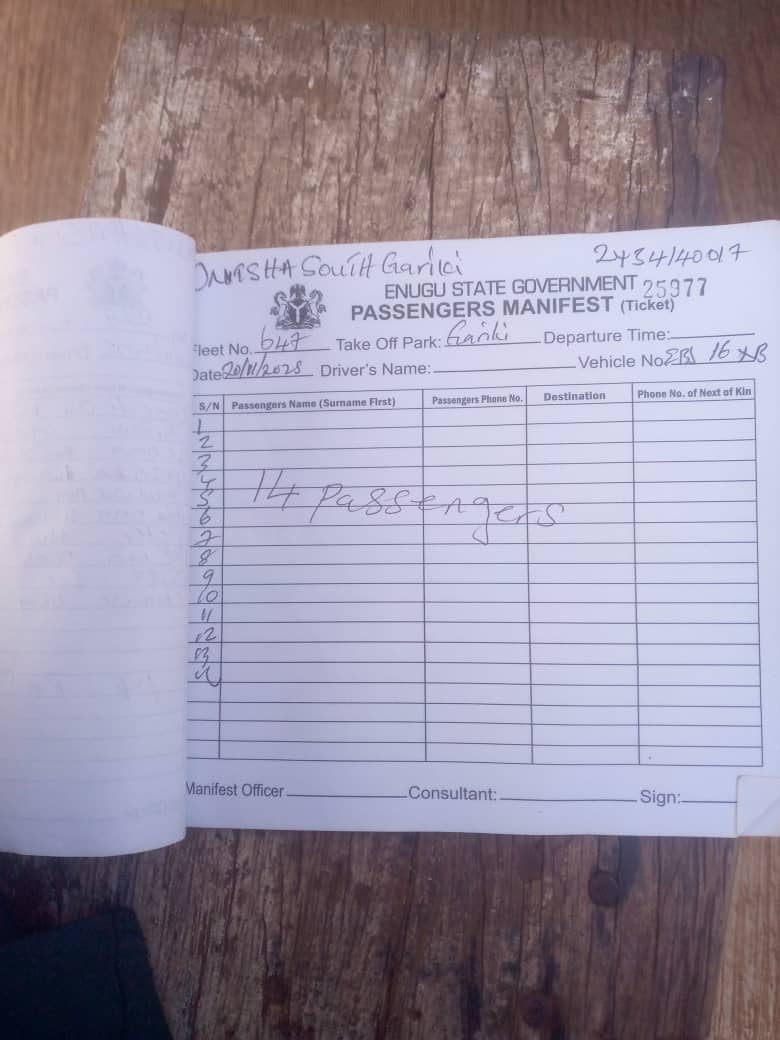 ONITSHA SOUTH Gariki 2434/40017
ENUGU STATE GOVERNMENT 25977
PASSENGERS MANIFEST (Ticket)
Fleet No. 647 Take Off Park: Gariki Departure Time:
Date 20/11/2025 Driver's Name: Vehicle No. EBJ 16 XB
S/N Passengers Name (Surname First) Passengers Phone No. Destination Phone No. of Next of Kin
1
2
3
4
5
14 Passengers
6
7
8
9
10
11
12
13
14
Manifest Officer Consultant: Sign: